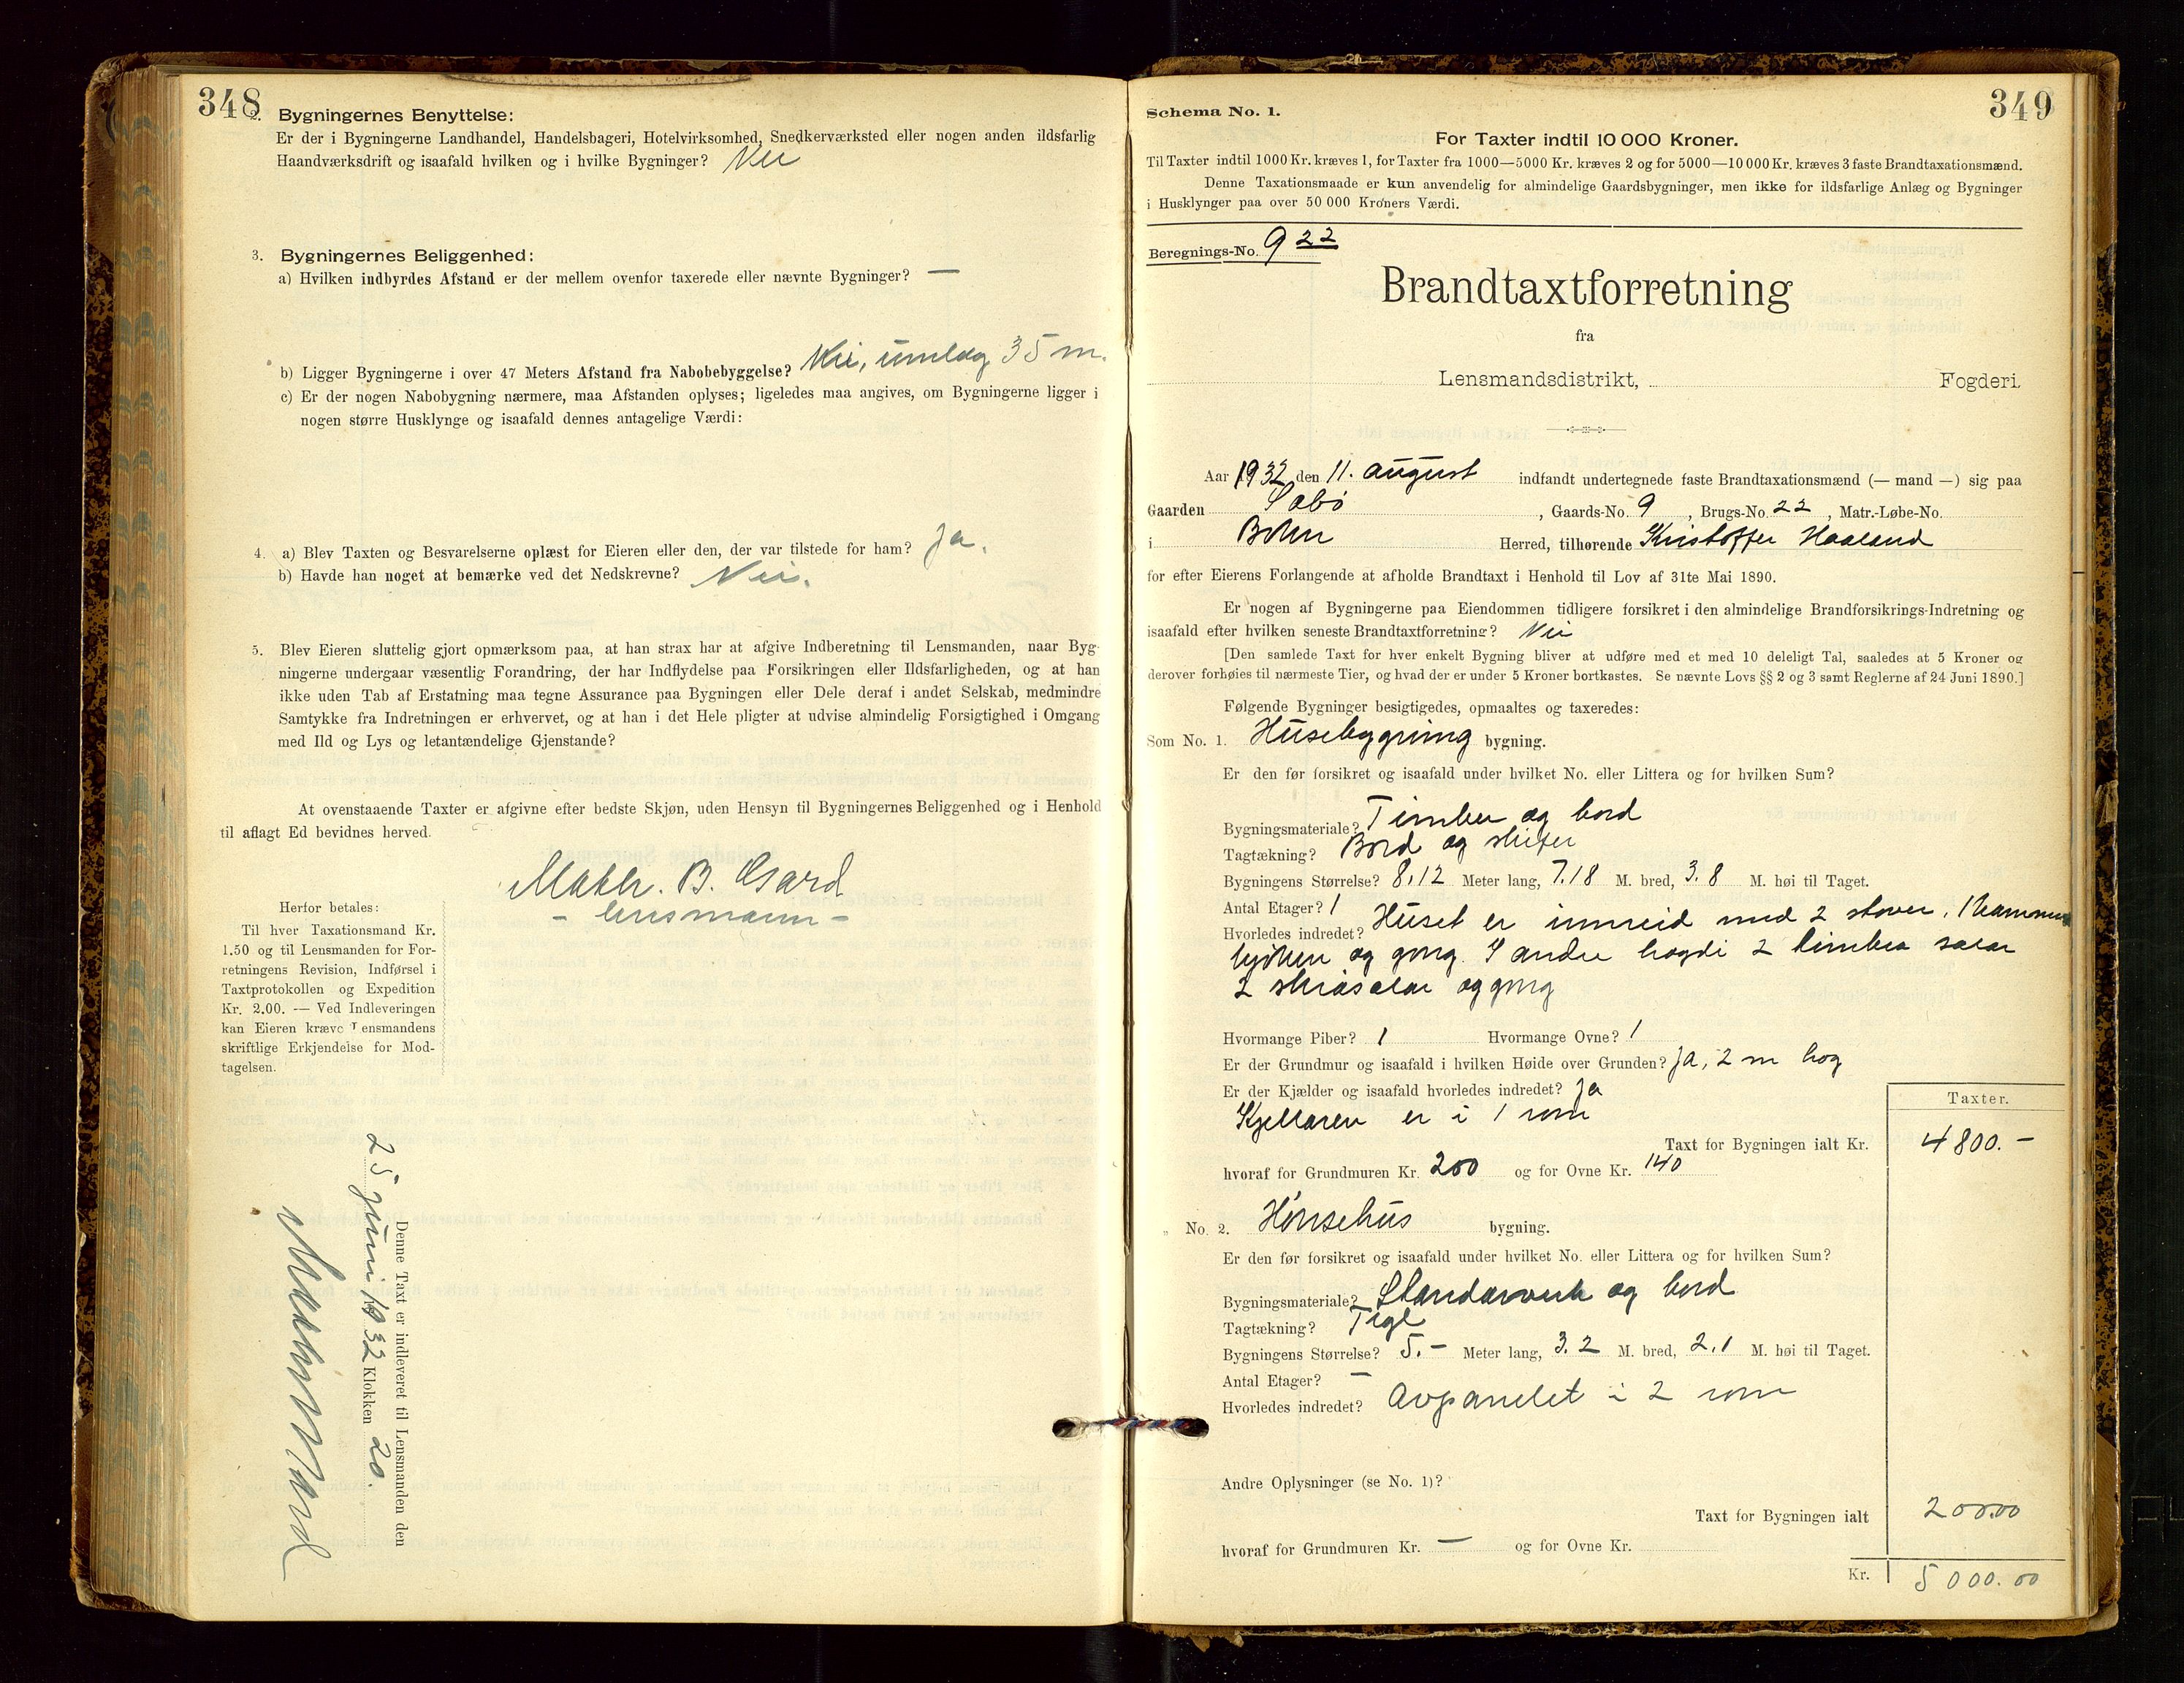 348
2. Bygningernes Benyttelse:
Er der i Bygningerne Landhandel, Handelsbageri, Hotelvirksomhed, Snedkerværksted eller nogen anden ildsfarlig
Haandværksdrift og isaafald hvilken og i hvilke Bygninger? Nei
3. Bygningernes Beliggenhed:
a) Hvilken indbyrdes Afstand er der mellem ovenfor taxerede eller nævnte Bygninger? —
b) Ligger Bygningerne i over 47 Meters Afstand fra Nabobebyggelse? Nei, umlag 35 m.
c) Er der nogen Nabobygning nærmere, maa Afstanden oplyses; ligeledes maa angives, om Bygningerne ligger i
nogen større Husklynge og isaafald dennes antagelige Værdi:
4. a) Blev Taxten og Besvarelserne oplæst for Eieren eller den, der var tilstede for ham? Ja.
b) Havde han noget at bemærke ved det Nedskrevne? Nei.
5. Blev Eieren sluttelig gjort opmærksom paa, at han strax har at afgive Indberetning til Lensmanden, naar Byg-
ningerne undergaar væsentlig Forandring, der har Indflydelse paa Forsikringen eller Ildsfarligheden, og at han
ikke uden Tab af Erstatning maa tegne Assurance paa Bygningen eller Dele deraf i andet Selskab, medmindre
Samtykke fra Indretningen er erhvervet, og at han i det Hele pligter at udvise almindelig Forsigtighed i Omgang
med Ild og Lys og letantændelige Gjenstande?
At ovenstaaende Taxter er afgivne efter bedste Skjøn, uden Hensyn til Bygningernes Beliggenhed og i Henhold
til aflagt Ed bevidnes herved.
B. Gard
- lensmann -
Herfor betales:
Til hver Taxationsmand Kr.
1.50 og til Lensmanden for For-
retningens Revision, Indførsel i
Taxtprotokollen og Expedition
Kr. 2.00. — Ved Indleveringen
kan Eieren kræve Lensmandens
skriftlige Erkjendelse for Mod-
tagelsen.
Denne Taxt er indleveret til Lensmanden den
25 juni 1932 Klokken 20.
349
Schema No. 1.
For Taxter indtil 10 000 Kroner.
Til Taxter indtil 1000 Kr. kræves 1, for Taxter fra 1000—5000 Kr. kræves 2 og for 5000—10 000 Kr. kræves 3 faste Brandtaxationsmænd.
Denne Taxationsmaade er kun anvendelig for almindelige Gaardsbygninger, men ikke for ildsfarlige Anlæg og Bygninger
i Husklynger paa over 50 000 Kroners Værdi.
Beregnings-No. 9 22
Brandtaxtforretning
fra
Lensmandsdistrikt, Fogderi.
Aar 1932 den 11. august indfandt undertegnede faste Brandtaxationsmænd (— mand —) sig paa
Gaarden Sæbø, Gaards-No. 9, Brugs-No. 22, Matr.-Løbe-No.
i Bokn Herred, tilhørende Kristoffer Haaland
for efter Eierens Forlangende at afholde Brandtaxt i Henhold til Lov af 31te Mai 1890.
Er nogen af Bygningerne paa Eiendommen tidligere forsikret i den almindelige Brandforsikrings-Indretning og
isaafald efter hvilken seneste Brandtaxtforretning? Nei
[Den samlede Taxt for hver enkelt Bygning bliver at udføre med et med 10 deleligt Tal, saaledes at 5 Kroner og
derover forhøies til nærmeste Tier, og hvad der er under 5 Kroner bortkastes. Se nævnte Lovs §§ 2 og 3 samt Reglerne af 24 Juni 1890.]
Følgende Bygninger besigtigedes, opmaaltes og taxeredes:
Som No. 1. Husebygning bygning.
Er den før forsikret og isaafald under hvilket No. eller Littera og for hvilken Sum?
Bygningsmateriale? Timber og bord
Tagtækning? Bord og skifer
Bygningens Størrelse? 8,12 Meter lang, 7.18 M. bred, 3.8 M. høi til Taget.
Antal Etager? 1
Hvorledes indredet? Huset er innreid med 2 stover, 1 kammers
kjøken og gong. I andre høgdi 2 timbra salar
2 skråsalar og gong
Hvormange Piber? 1 Hvormange Ovne? 1
Er der Grundmur og isaafald i hvilken Høide over Grunden? Ja, 2 m høg
Er der Kjælder og isaafald hvorledes indredet? Ja
Kjellaren er i 1 rom
Taxter.
Taxt for Bygningen ialt Kr. 4800.-
hvoraf for Grundmuren Kr. 200 og for Ovne Kr. 140
" No. 2. Hønsehus bygning.
Er den før forsikret og isaafald under hvilket No. eller Littera og for hvilken Sum?
Bygningsmateriale? Standarverk og bord
Tagtækning? Tegl
Bygningens Størrelse? 5.- Meter lang, 3.2 M. bred, 2.1 M. høi til Taget.
Antal Etager? —
Hvorledes indredet? Avpanelet i 2 rom
Andre Oplysninger (se No. 1)?
Taxt for Bygningen ialt 200.00
hvoraf for Grundmuren Kr. — og for Ovne Kr.
Kr. 5000.00